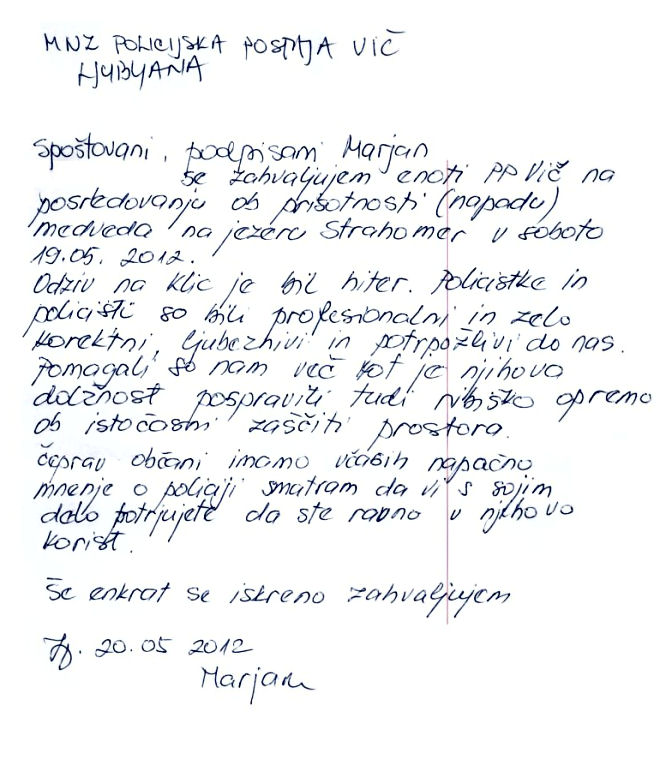 MNZ POLICIJSKA POSTAJA VIČ
LJUBLJANA
Spoštovani, podpisani Marjan
se zahvaljujem enoti PP Vič na
posredovanju ob prisotnosti (napadu)
medveda na jezeru Strahomer v soboto
19.05.2012.
Odziv na klic je bil hiter. Policistke in
policisti so bili profesionalni in zelo
korektni, ljubeznivi in potrpožlivi do nas.
Pomagali so nam več kot je njihova
dolžnost pospraviti tudi ribiško opremo
ob istočasni zaščiti prostora.
Čeprav občani imamo včasih napačno
mnenje o policiji smatram da vi s sojim
delo potrjujete da ste ravno v njihovo
korist.
Še enkrat se iskreno zahvaljujem
20.05 2012
Marjan